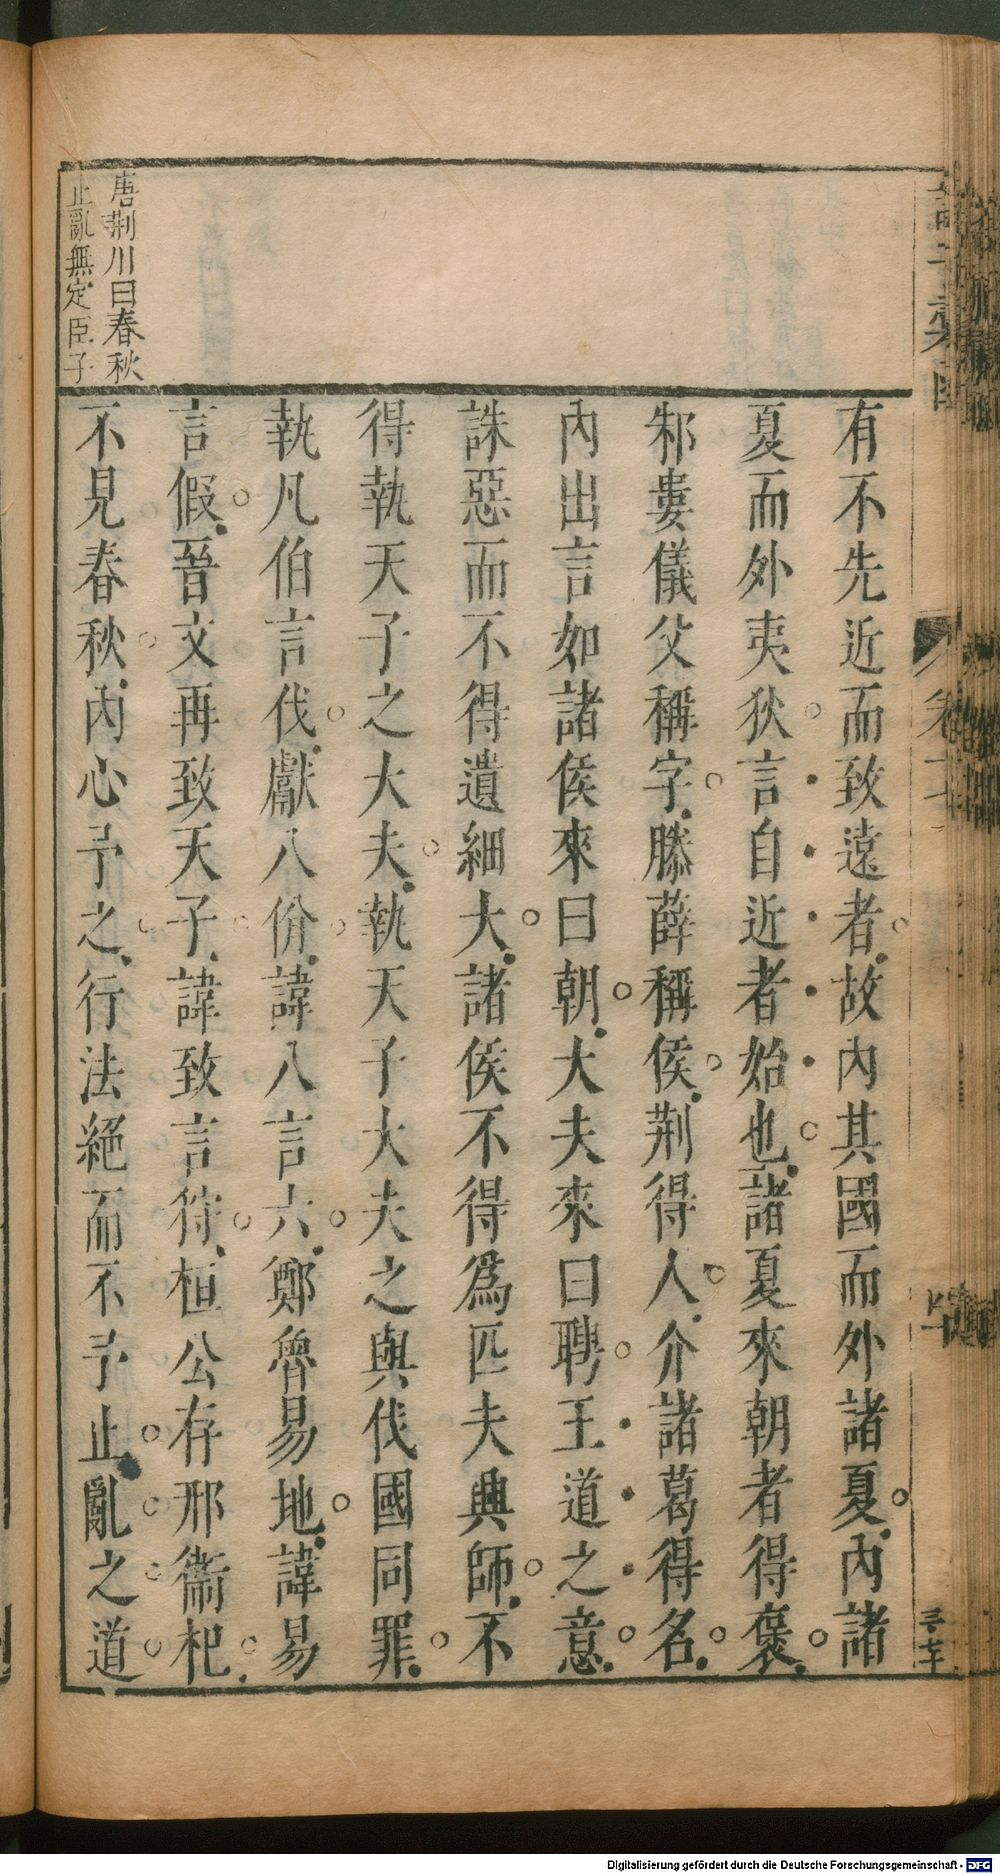 有不先近而致遠者故內其國而外諸夏內諸
夏而外夷狄言自近者始也諸夏來朝者得褒
邾婁儀父稱字滕薛稱侯荆得人介諸葛得名
內出言如諸侯來曰朝大夫來曰聘王道之意
誅惡而不得遺細大諸侯不得爲匹夫興師不
得執天子之大夫執天子大夫之與伐國同罪
執凡伯言伐獻八佾諱八言六鄭魯易地諱易
言假晉文再致天子諱致言狩桓公存邢衞杞
不見春秋內心予之行法絕而不予止亂之道
唐荆川曰春秋
止亂無定臣子
卷十
Digitalisierung gefördert durch die Deutsche Forschungsgemeinschaft - DFG